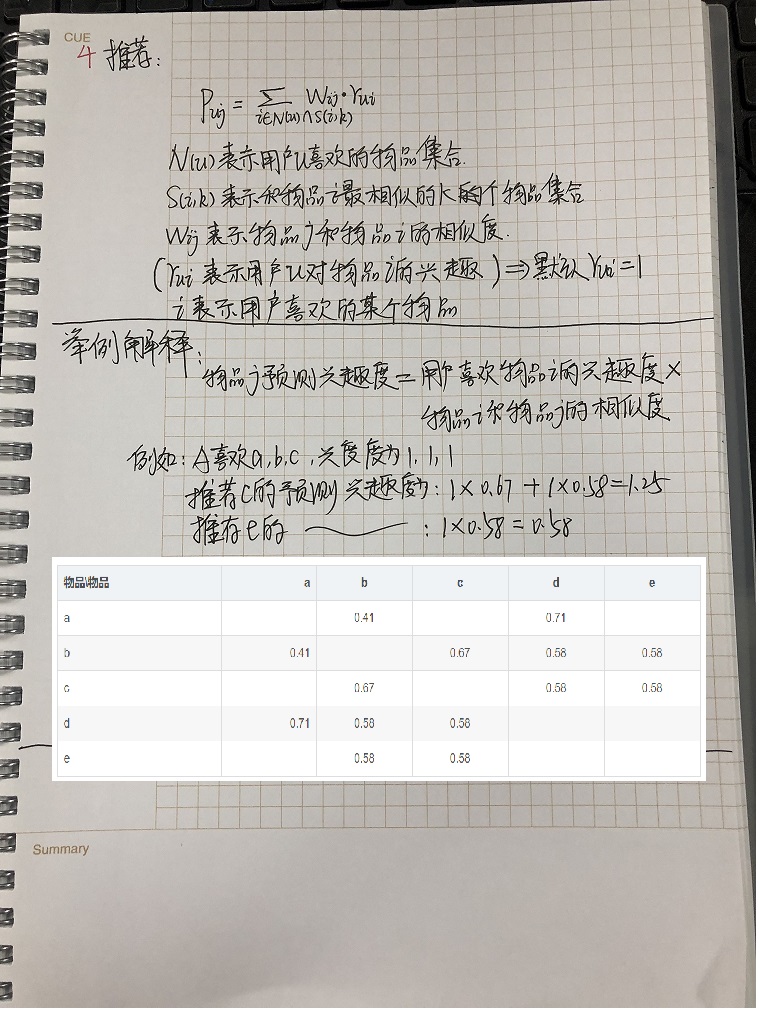 CUE
4 推荐:
Puj = ∑ i∈N(u)∩S(i,k) Wij·rui
N(u)表示用户u喜欢的物品集合.
S(i,k)表示和物品i最相似的K个物品集合
Wij表示物品j和物品i的相似度.
(rui表示用户u对物品i的兴趣)⇒默认rui=1
i表示用户喜欢的某个物品
举例解释:
物品j预测兴趣度=用户喜欢物品i的兴趣度×
物品i和物品j的相似度
例如:A喜欢a,b,c,兴度度为1,1,1
推荐C的予页测兴趣度为:1×0.67+1×0.58=1.25
推存e的 :1×0.58=0.58
物品\物品 a b c d e
a 0.41 0.71
b 0.41 0.67 0.58 0.58
c 0.67 0.58 0.58
d 0.71 0.58 0.58
e 0.58 0.58
Summary